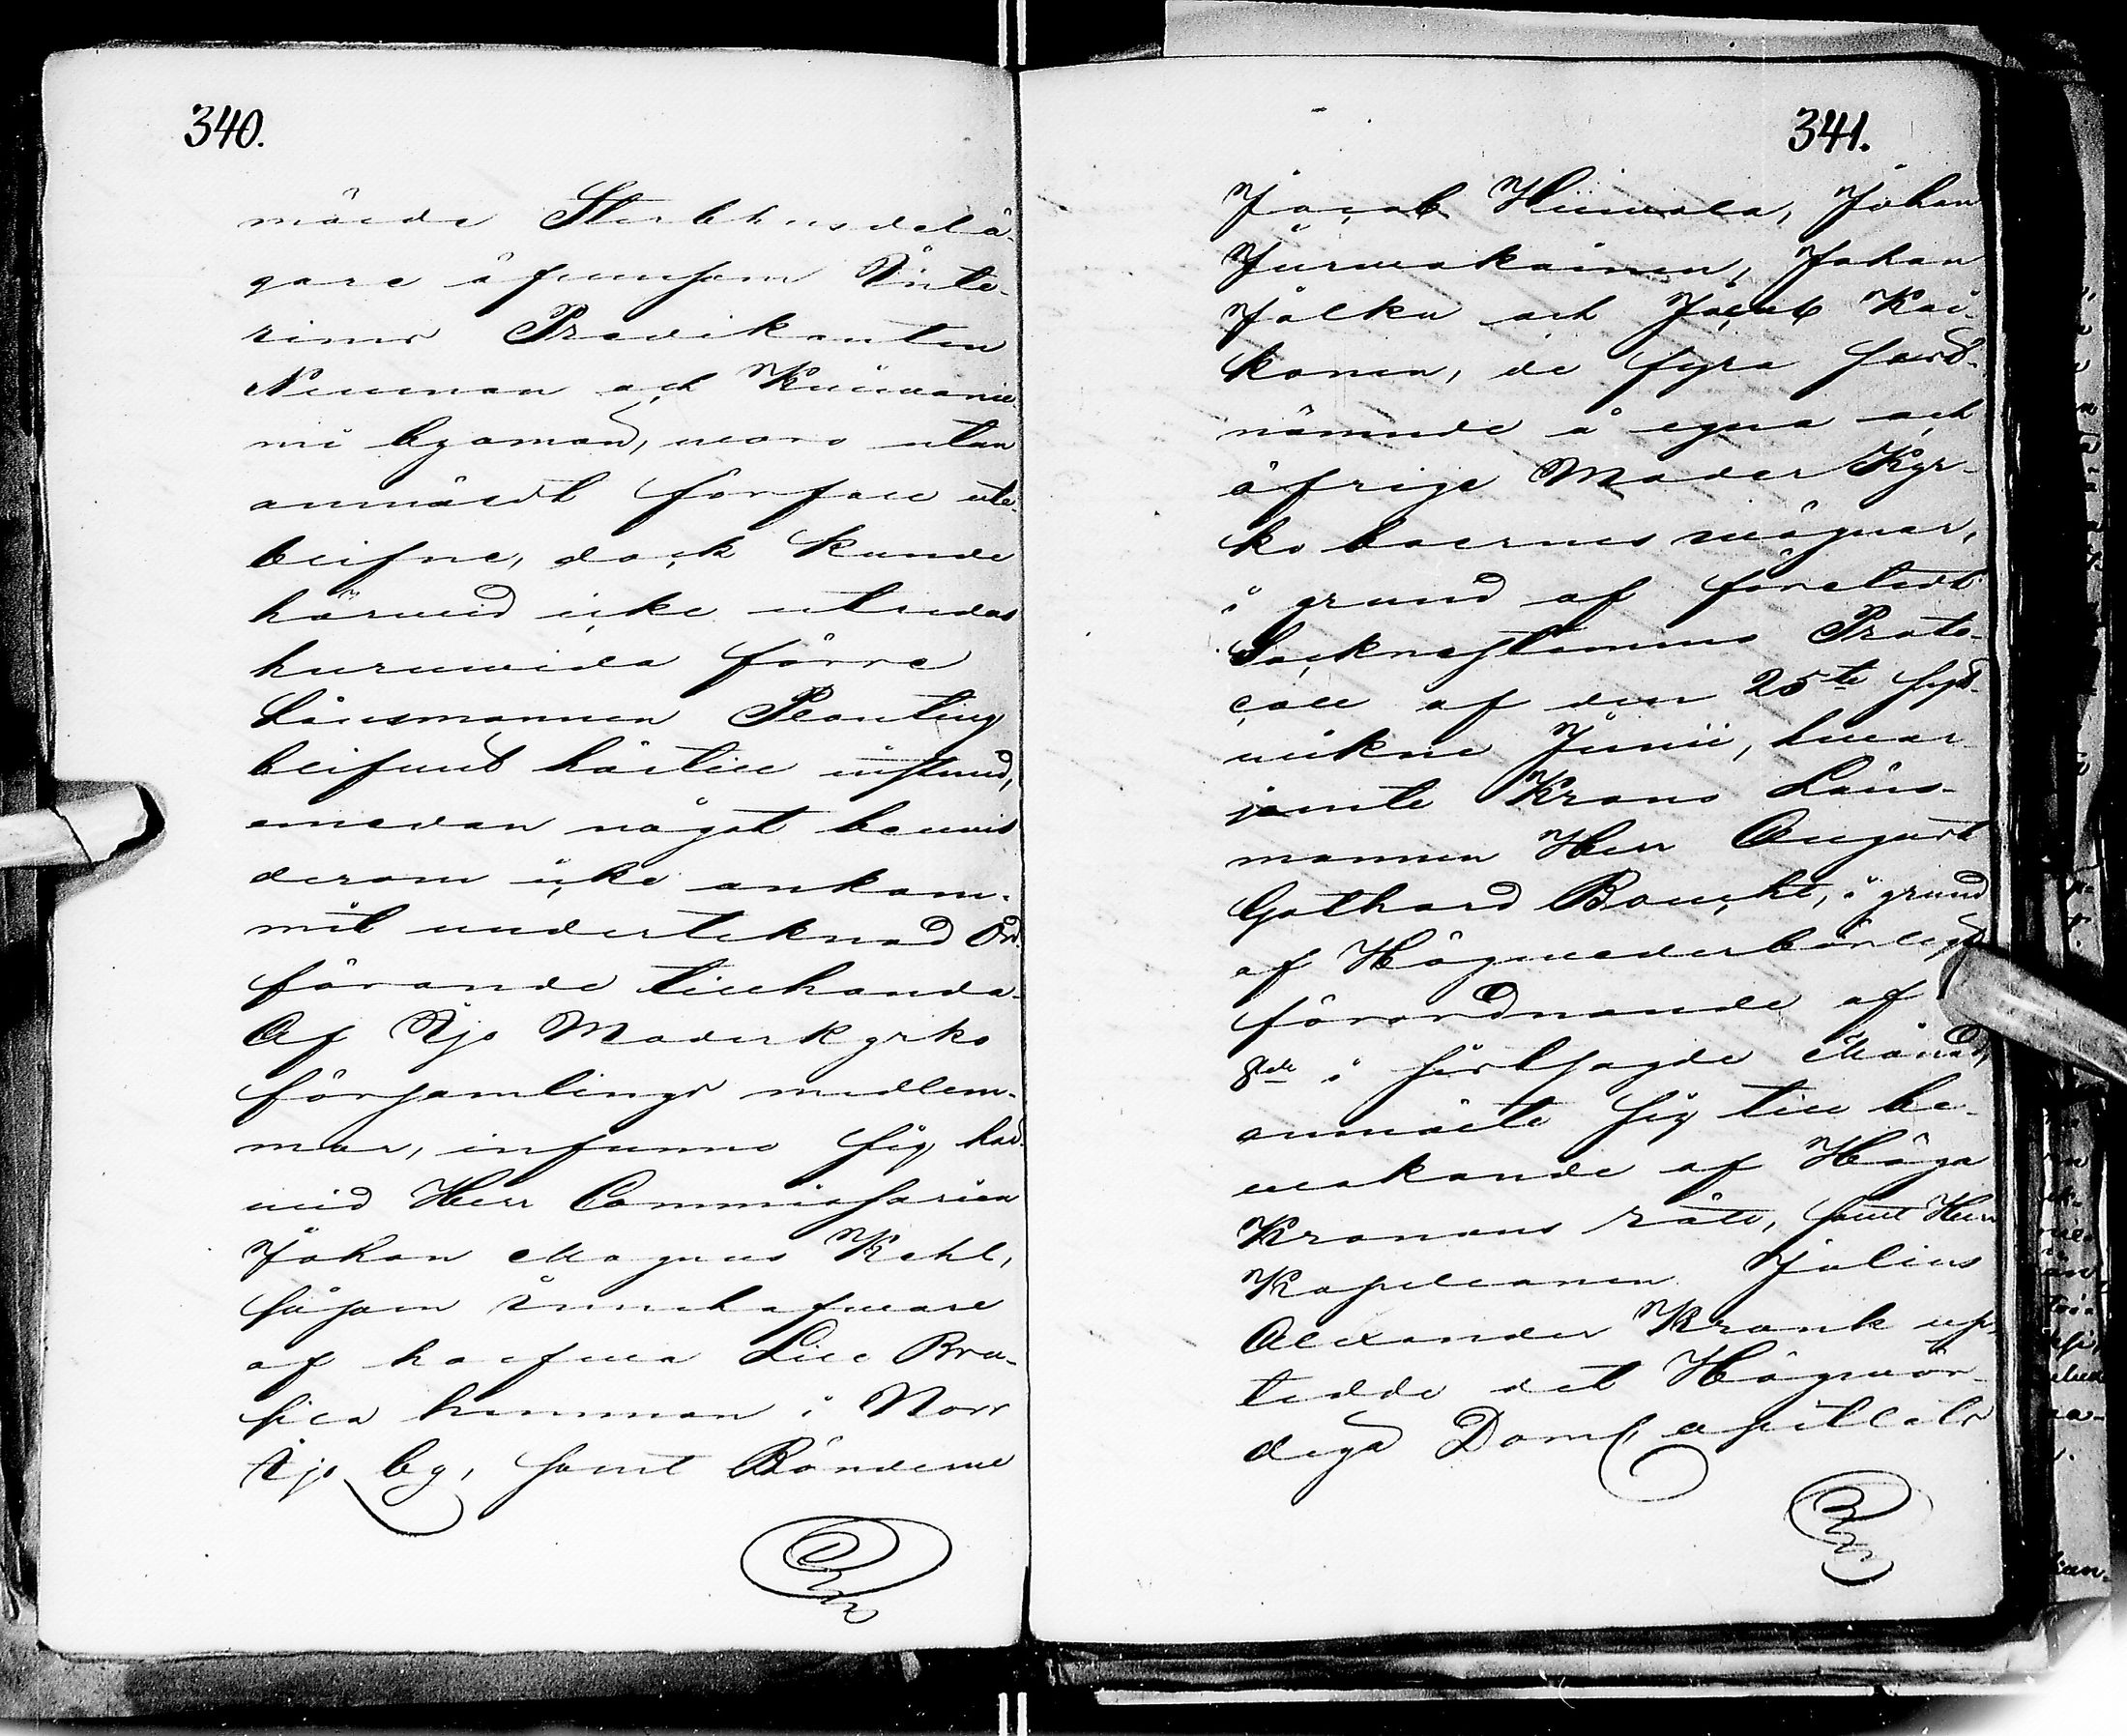 340.
mälde Sterbhusdelä-
gare äfvensom Inte-
rims Predikanten
Neuman och Kiiivanie-
mi byamän, woro utan
anmäldt förfall ute-
blifne, dock kunde
härwid icke utredas
huruwida förre
Länsmannen Planting
blifwit härtill instämd,
emedan något bewis
derom icke ankom-
mit undertecknad Ord-
förande tillhanda.
Af Ilpo Moderkyrko
församlings medlem-
mar, infunno sig här-
wid Herr Commissarien
Johan Magnus Kihl,
såsom Innehafware
af halfwa Lill Bru-
sila hemman i Norr
by, samt Bönderne
341.
Jacob Hiiwola, Johan
Jurwakainen, Johan
Jolku och Jacob Koi-
konen, de fyra sard-
nämnde å egna och
öfrige Moder Kyr-
ko boernes wägnar,
i grund af företedt
Socknestemmo Proto-
coll af den 25te syst-
wikne Junii, hwar-
jemte Krono Läns-
mannen Herr August
Gothard Boucht, i grund
af Högwederbörligt
förordnande af
8de i förstsagde Månad,
anmälte sig till be-
wakande af Höga
Kronans rätt, samt Herr
Kapellanen Julius
Alexander Krank up-
tedde det Högwör-
diga Dom Capitlets